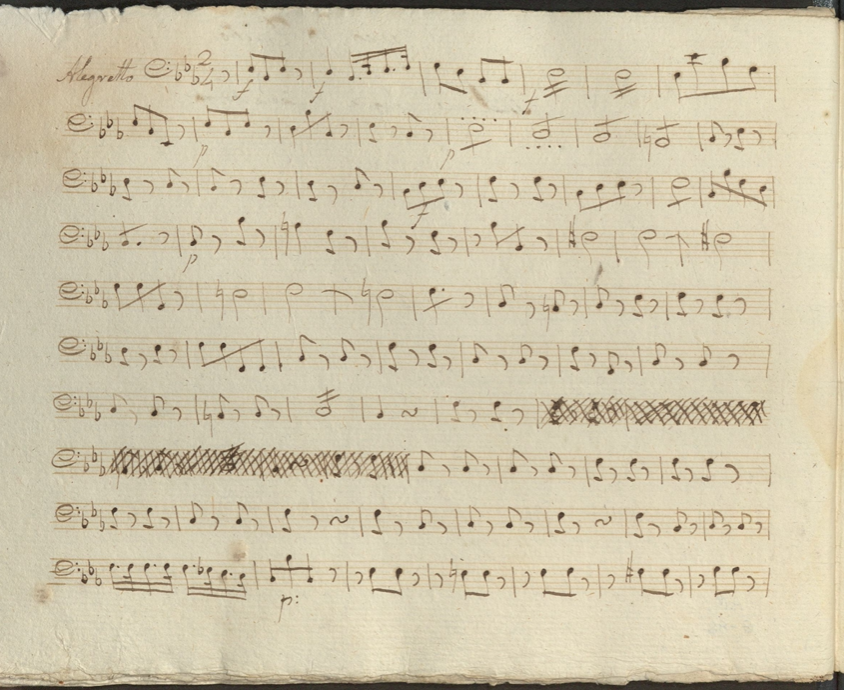 Alegretto 2 4 f f f
p p
f
p
p: